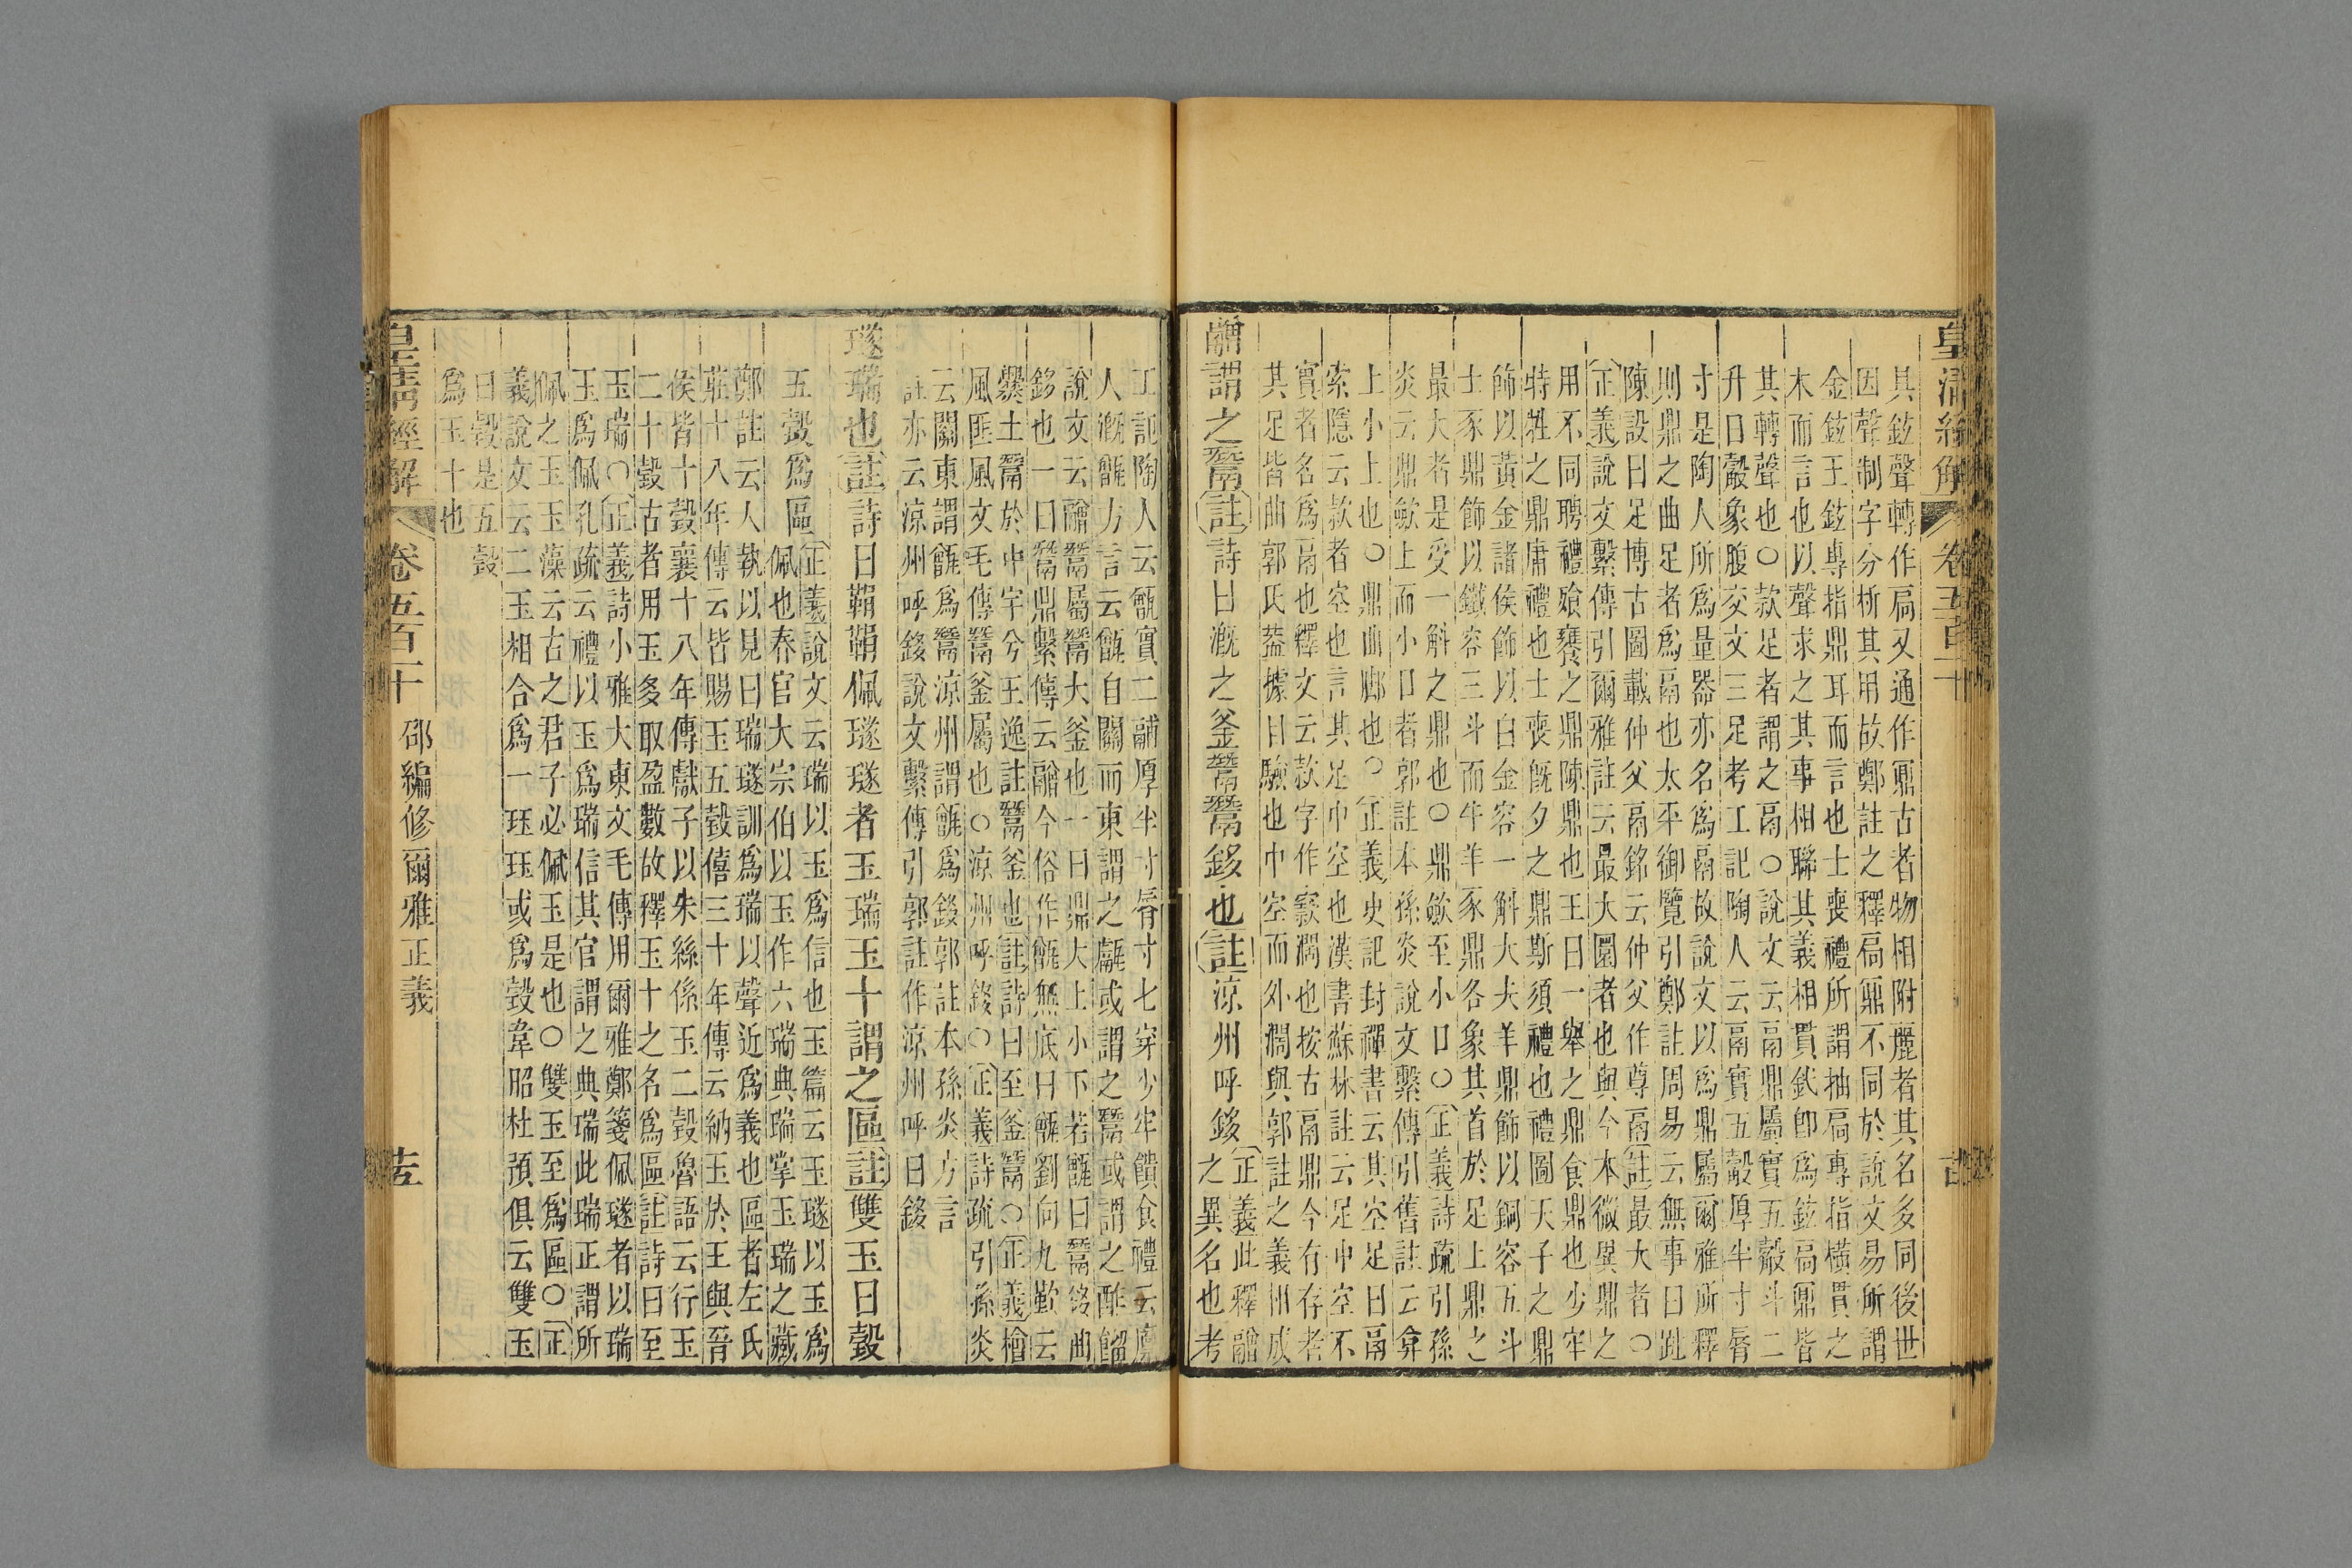 皇清經解 卷五百十 古
其鉉聲轉作扃又通作鼏古者物相附麗者其名多同後世
因聲制字分析其用故鄭註之釋扃鼏不同於說文易所謂
金鉉王鉉專指鼎耳而言也士喪禮所謂抽扃專指橫貫之
木而言也以聲求之其事相聯其義相貫釴卽爲鉉扃鼏皆
其轉聲也○款足者謂之鬲○說文云鬲鼎屬實五觳斗二
升曰觳象腹交文三足考工記陶人云鬲實五觳厚半寸脣
寸是陶人所爲量器亦名爲鬲故說文以爲鼎屬爾雅所釋
則鼎之曲足者爲鬲也太平御覽引鄭註周易云無事曰趾
陳設曰足博古圖載仲父鬲銘云仲父作尊鬲註最大者○
正義說文繫傳引爾雅註云最大圜者也與今本微異鼎之
用不同聘禮飧饔之鼎陳鼎也王日一舉之鼎食鼎也少牢
特牲之鼎庸禮也士喪旣夕之鼎斯須禮也禮圖天子之鼎
飾以黃金諸侯飾以白金容一斛大夫羊鼎飾以銅容五斗
士豕鼎飾以鐵容三斗而牛羊豕鼎各象其首於足上鼎之
最大者是受一斛之鼎也○鼎斂至小口○正義詩疏引孫
炎云鼎斂上而小口者郭註本孫炎說文繫傳引舊註云弇
上小上也○鼎曲䣙也○正義史記封禪書云其空足曰鬲
索隱云款者空也言其足中空也漢書蘇林註云足中空不
實者名爲鬲也釋文云款字作窾濶也按古鬲鼎今有存者
其足皆曲郭氏蓋據目驗也中空而外濶與郭註之義相成
鬵謂之鬵註詩曰漑之釜鬵鬵鉹也註涼州呼鉹正義此釋䰝
之異名也考
工記陶人云甗實二鬴厚半寸脣寸七穿少牢饋食禮云廪
人漑甑方言云甑自關而東謂之甗或謂之鬵或謂之酢餾
說文云䰝鬵屬鬵大釜也一曰鼎大上小下若甑曰鬵鉹曲
鉹也一曰鬵鼎繫傳云䰝今俗作甑無底曰甗劉向九歎云
爨土鬵於中宇兮王逸註鬵釜也註詩曰至釜鬵○正義檜
風匪風文毛傳鬵釜屬也○涼州呼鉹○正義詩疏引孫炎
云關東謂甑爲鬵涼州謂甑爲鉹郭註本孫炎方言
註亦云涼州呼鉹說文繫傳引郭註作涼州呼曰鉹
璲瑞也註詩曰鞙鞙佩璲璲者玉瑞玉十謂之區註雙玉曰瑴
五瑴爲區正義說文云瑞以玉爲信也玉篇云玉璲以玉爲
佩也春官大宗伯以玉作六瑞典瑞掌玉瑞之藏
鄭註云人執以見曰瑞璲訓爲瑞以聲近爲義也區者左氏
莊十八年傳云皆賜玉五瑴僖三十年傳云納玉於王與晉
侯皆十瑴襄十八年傳獻子以朱絲係玉二瑴魯語云行玉
二十瑴古者用玉多取盈數故釋玉十之名爲區註詩曰至
玉瑞○正義詩小雅大東文毛傳用爾雅鄭箋佩璲者以瑞
玉爲佩孔疏云禮以玉爲瑞信其官謂之典瑞此瑞正謂所
佩之玉玉藻云古之君子必佩玉是也○雙玉至爲區○正
義說文云二玉相合爲一珏珏或爲瑴韋昭杜預俱云雙玉
曰瑴是五瑴
爲玉十也
皇清經解 卷五百十 邵編修爾雅正義 𦮼